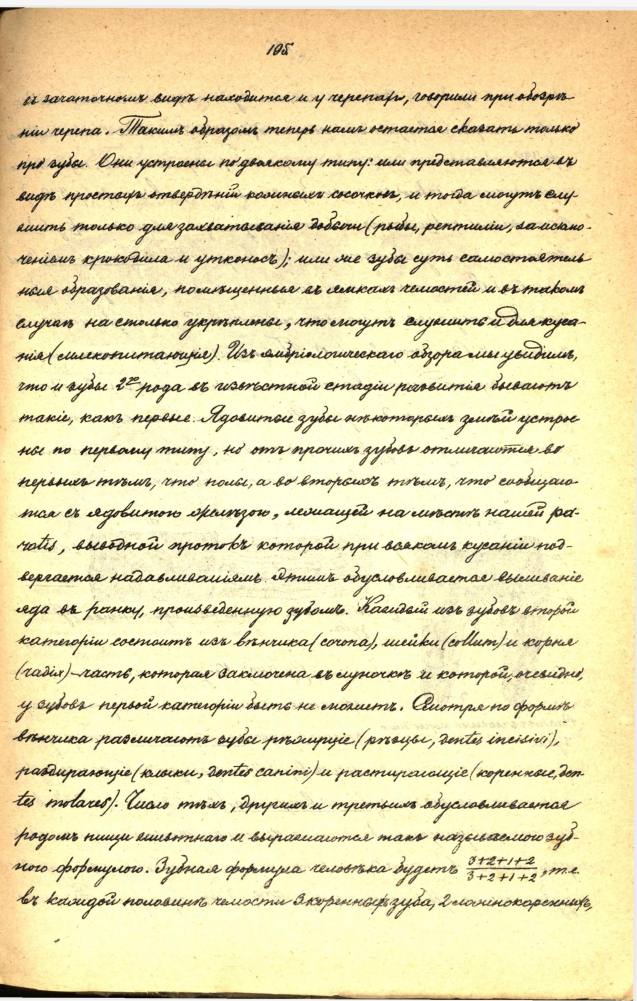 195
въ зачаточномъ видѣ находится и у черепахъ, говорили при обозрѣ-
ніи черепа. Такимъ образомъ теперь намъ остается сказать только
про зубы. Они устроены по двоякому типу: или представляются въ
видѣ простыхъ отвердѣній кожныхъ сосочковъ, и тогда могутъ слу-
жить только для захватыванія добычи (рыбы, рептиліи, за исклю-
ченіемъ крокодила и утконосъ); или же зубы суть самостоятель
ныя образованія, помѣщенныя въ ямкахъ челюстей и въ такомъ
случаѣ на столько укрѣплены, что могутъ служить и для куса-
нія (млекопитающіе). Изъ эмбріологическаго обзора мы увидимъ,
что и зубы 2го рода въ извѣстной стадіи развитія бываютъ
такіе, какъ первые. Ядовитые зубы нѣкоторыхъ змѣй устрое-
ны по первому типу, но отъ прочихъ зубовъ отличаются во
первыхъ тѣмъ, что полы, а во вторыхъ тѣмъ, что сообщаю
тся съ ядовитою железою, лежащей на мѣстѣ нашей pa-
rotis, выводной протокъ которой при всякомъ кусаніи под-
вергается надавливаніямъ. Этимъ обусловливается выливаніе
яда въ ранку, произведенную зубомъ. Каждый изъ зубовъ второй
категоріи состоитъ изъ вѣнчика (corona), шейки (collum) и корня
(radix) – часть, которая заключена въ луночкѣ и которой, очевидно,
у зубовъ первой категоріи быть не можетъ. Смотря по формѣ
вѣнчика различаютъ зубы рѣжущіе (рѣзцы, dentes incisivi),
раздирающіе (клыки, dentes canini) и растирающіе (коренные, den-
tes molares). Число тѣхъ, другихъ и третьихъ обусловливается
родомъ пищи животнаго и выражаются такъ называемого зуб-
ного формулою. Зубная формула человѣка будетъ 3+2+1+2/3+2+1+2, т.е.
въ каждой половинѣ челюсти 3 коренныхъ зуба, 2 ложнокоренныхъ,